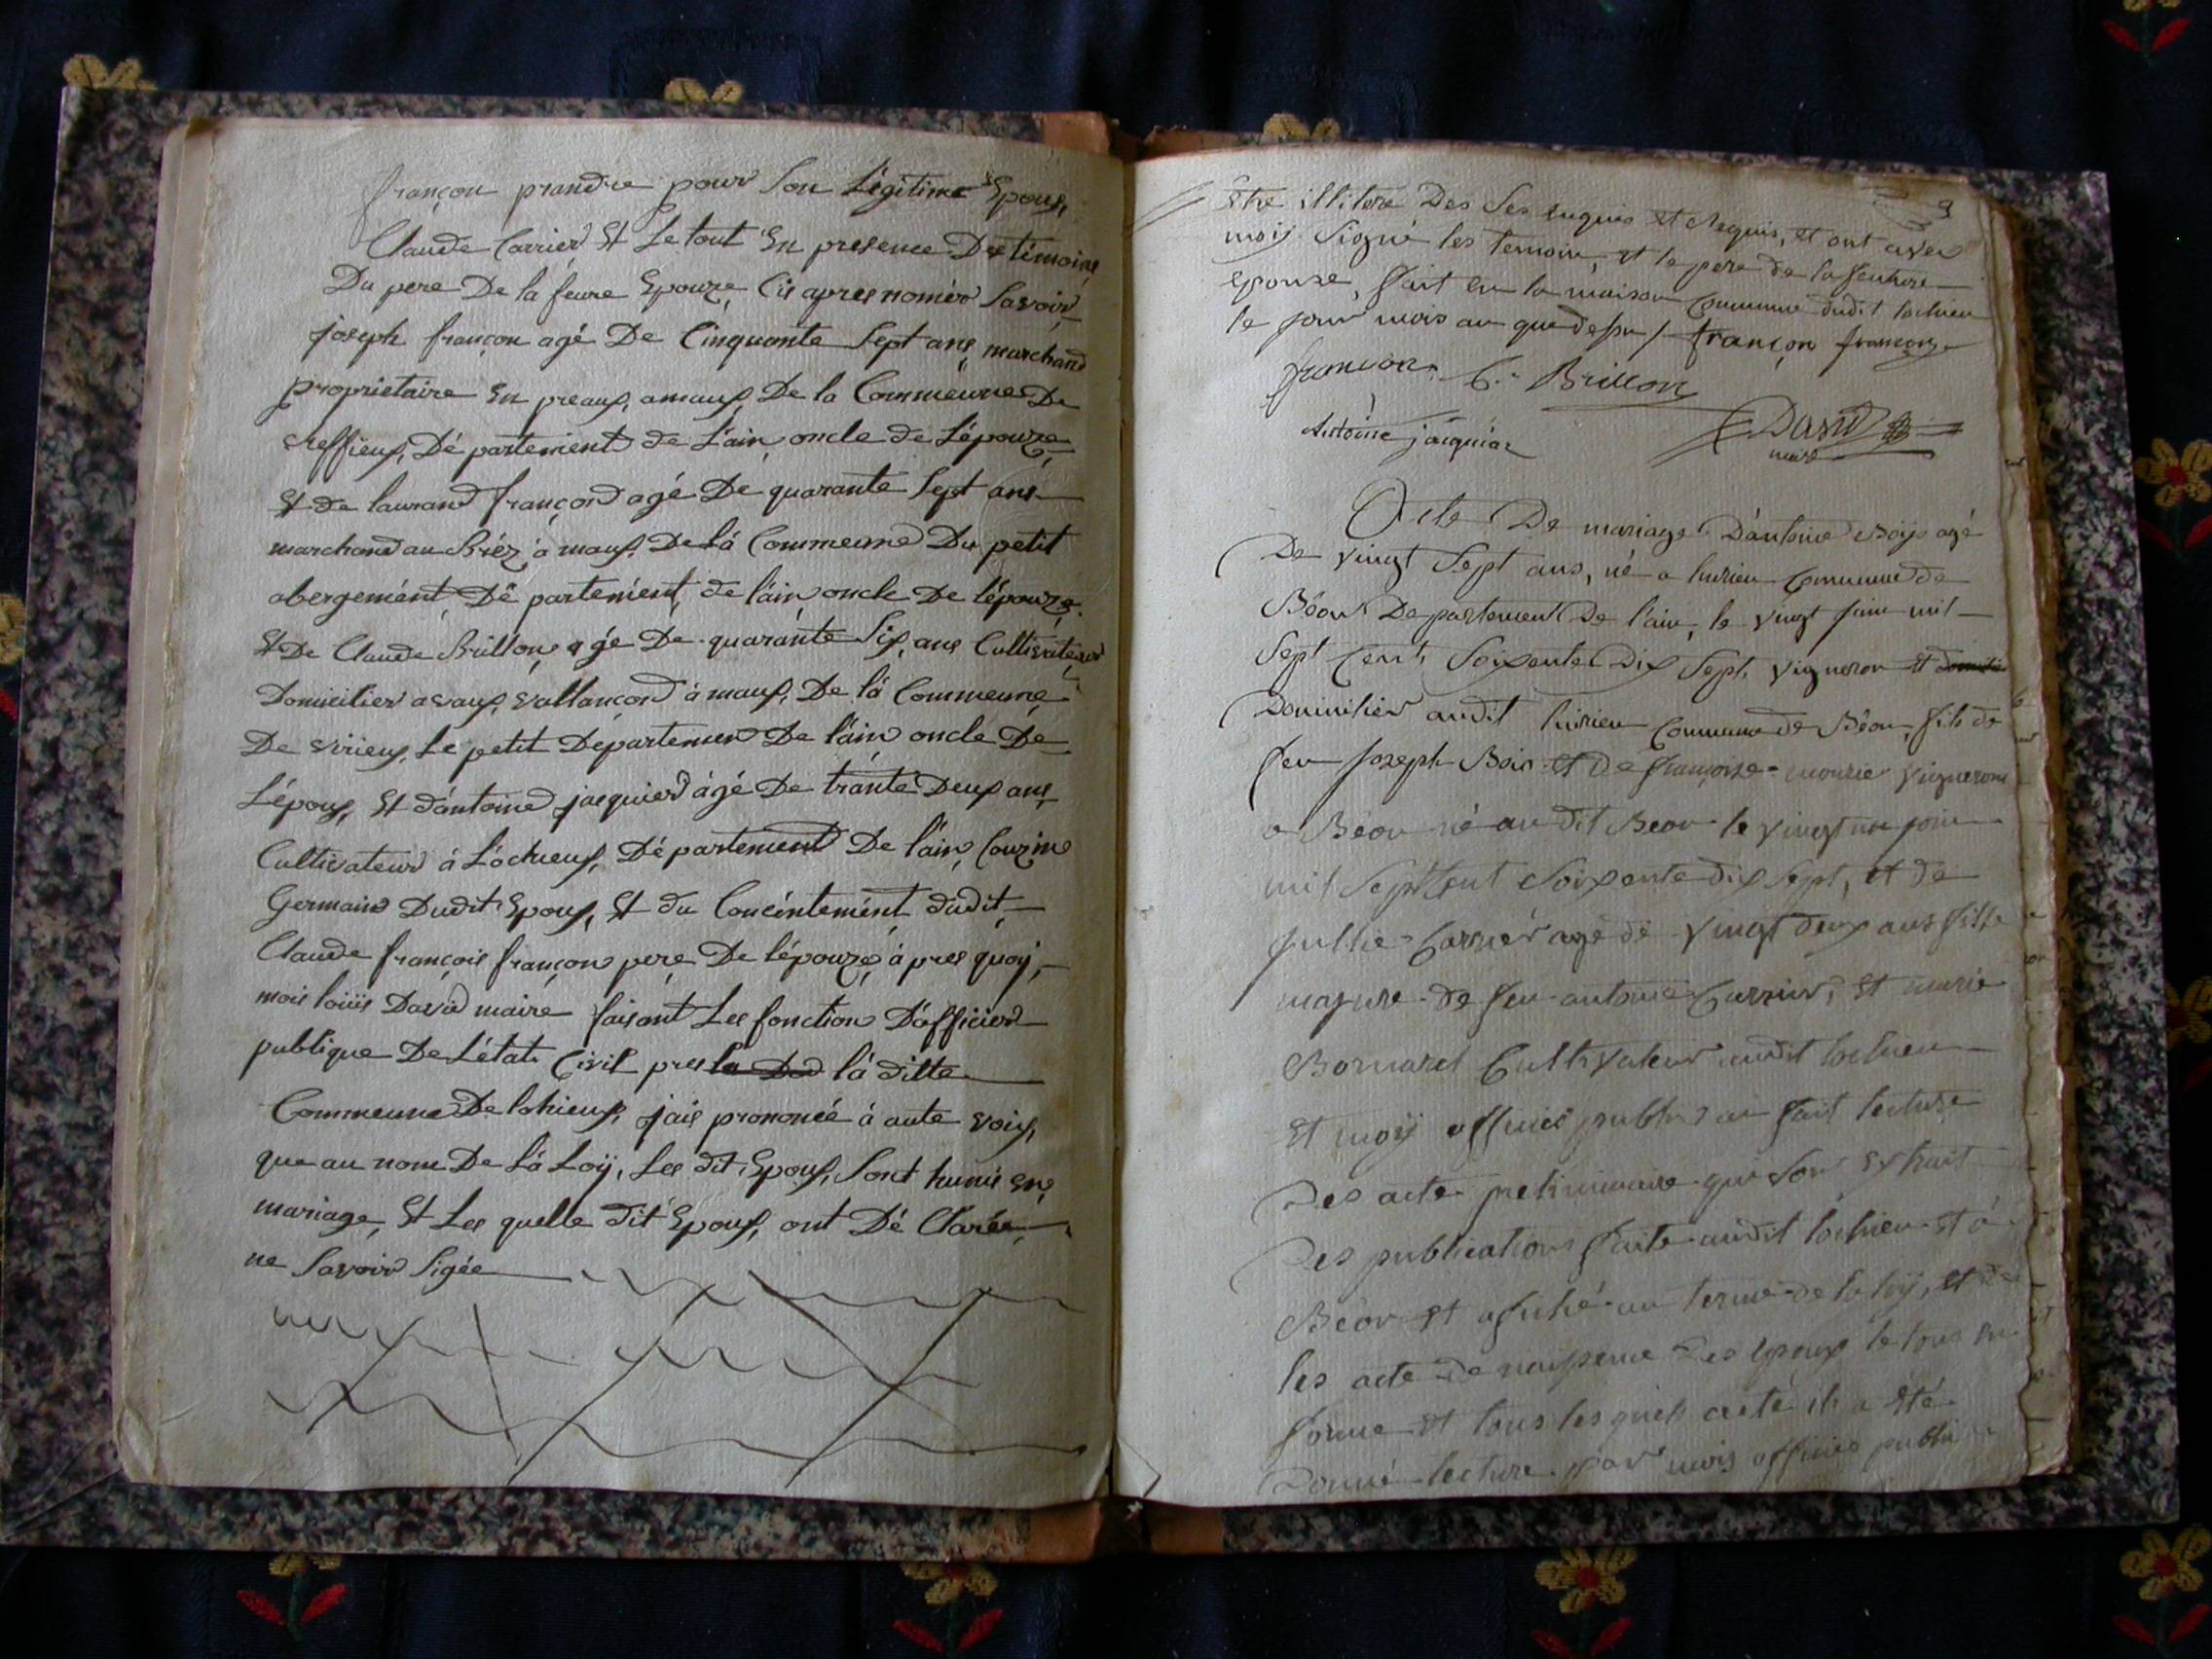 françon prandre pour son Légitime Epoux,
Claude Carrier Et Le tout En presence Des témoins
Du pere De la feure Epouze Cis apres nomér Savoir
joseph françon agé De Cinquante Sept ans marchand
proprietaire En preaux, amaux, De la Commeune De
reffieux, Dé partement de L'ain oncle de L'épouze
Et de laurand françon agé De quarante Sept ans
marchand au Briéz à maux, De Lá Commeune Du petit
abergemént, Dé partemént, de l'ain oncle De lépouze
Et De Claude Brillon agé De quaránte Six, ans Cultivateur
Domicilier avaux, vallançon à maux, De lá Commeune
De virieux, Le petit Départemen De l'áin oncle De
L'époux, Et d'ántoine jacquier ágé De tránte Deux ans
Cultivateur á Lóchieux, Dé partement De l'áin, Couzine
Germain Dudit Epoux, Et du Concéntemént dudit
Claude françois françon pere De lépouze á pres quoÿ,
mois loüis David maire faisant Les fonction D'áfficier
publique De L'état Civil pres la Dod lá ditte
Commeune De lohieux, jais prononcé à aute voix,
que au nom De Lá Loÿ, Les dit, Epoux, Sont hunis En
mariage, Et Les quelle dit Epoux, ont Dé Clarée,
ne Savoir Sigée
9
Etre illitere Des Ses enquis Et Requis, et ont avec
moij Signé les temoin, et le pere de la feuture
epouse, fait en la maison Commune dudit lochieu
le jour mois an que dessu / françon françon
françon C. Brillon
Antoine jacquiez David
maire
Acte De mariage D'antoine Boijs agé
De vingt Sept ans, né a luirieu Commune de
Béon Departement De l'ain, le vingt juin mil
Sept Cent Soixente Dix Sept, vigneron Et
Domicilier audit luirieu Commune de Béon, fils de
feu Joseph Bois Et De françoise mourier vignerons
a Béon né audit Beon le vingt un juin
mil Sept Cent Soixente dix Sept, et de
Jullie Carrier agé de vingt deux ans fille
majure de feu antoine Carrier, Et marie
Bornarel Cultivateur audit lochieu
Et moÿ officié public ai fait lecture
Des acte preliminaire qui Sont Extrait
Des publication faite audit lochieu et à
Béon et afiché au terme de la loÿ, et de
les acte De naissence Des epoux le tous en
forme Et tous lesquels acte il a Eté
Donné lecture par mois officié publi